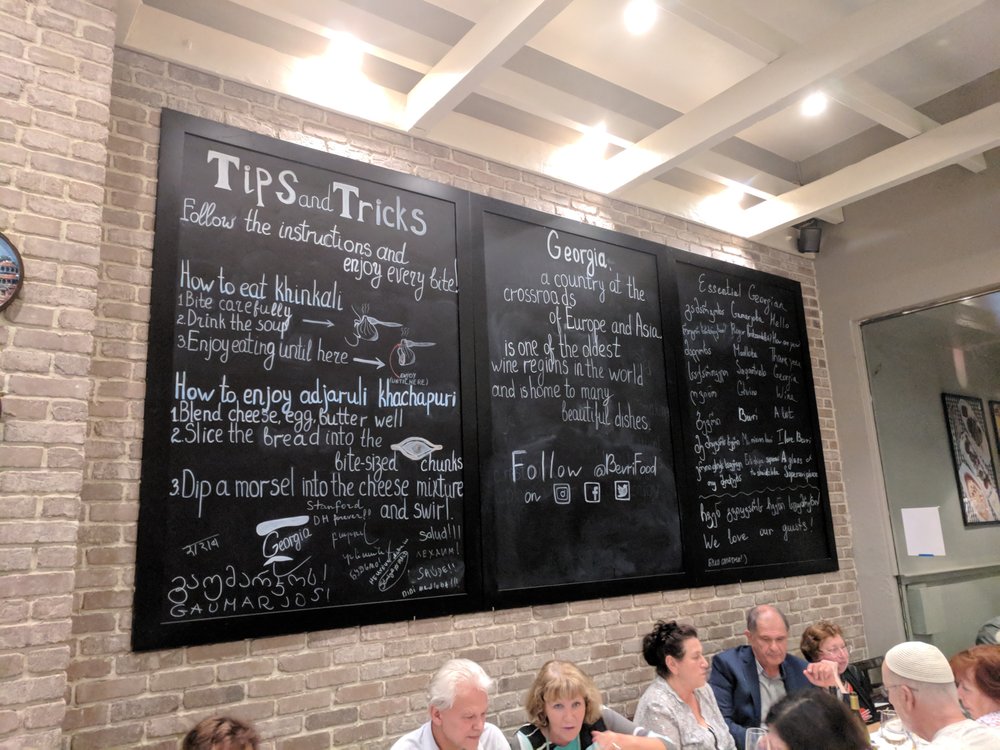 Tips and Tricks
Follow the instructions and
enjoy every bite!
How to eat khinkali
1. Bite carefully
2. Drink the soup
3. Enjoy eating until here
ENJOY
(UNTIL HERE)
How to enjoy adjaruli khachapuri
1. Blend cheese, egg, butter well
2. Slice the bread into the
bite-sized chunks
3. Dip a morsel into the cheese mixture
and swirl.
Stanford
Georgia
salud!!!
ЛЕХАИМ!
გაუმარჯოს!
GAUMARJOS!
Georgia,
a country at the
crossroads
of Europe and Asia
is one of the oldest
wine regions in the world
and is home to many
beautiful dishes.
Follow @BevriFood
on
Essential Georgian
გამარჯობა Gamarjoba Hello
How are you
მადლობა Madloba Thank you
საქართველო Sakartvelo Georgia
ღვინო Gvino Wine
ბევრი Bevri A lot
I love Bevri
A glass of
Saperavi please
We love our guests!